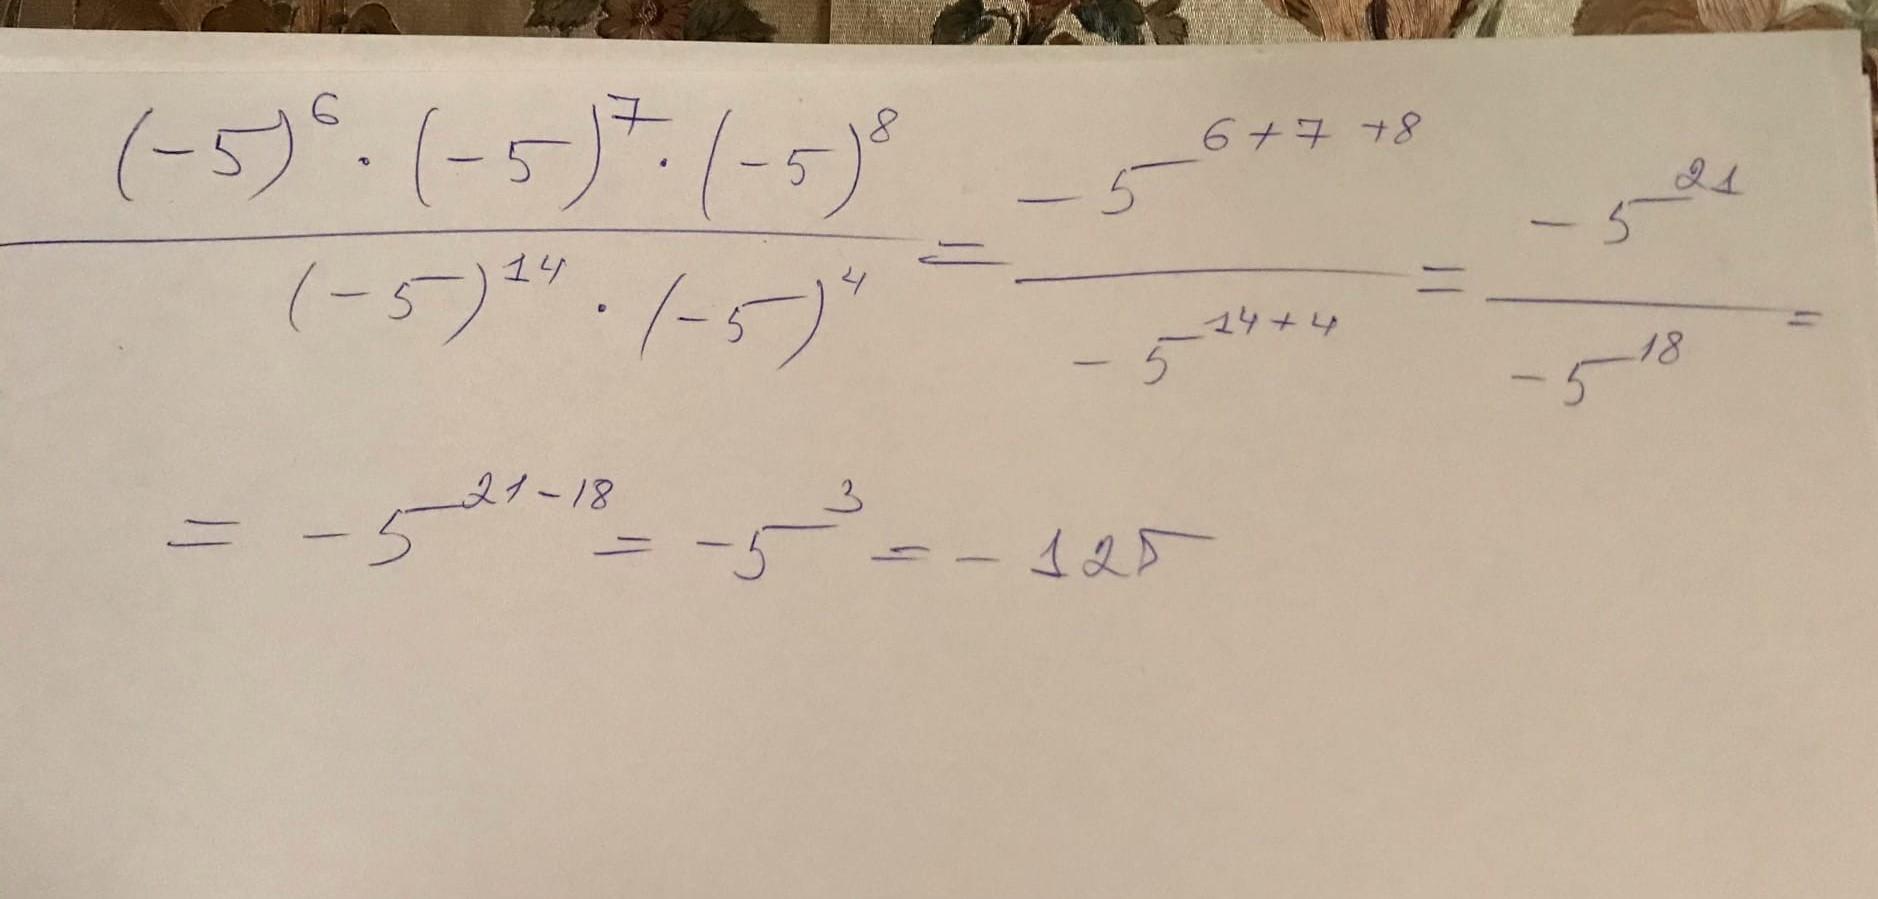 (-5)^6 · (-5)^7 · (-5)^8 / (-5)^14 · (-5)^4 = -5^6+7+8 / -5^14+4 = -5^21 / -5^18 =
= -5^21-18 = -5^3 = -125